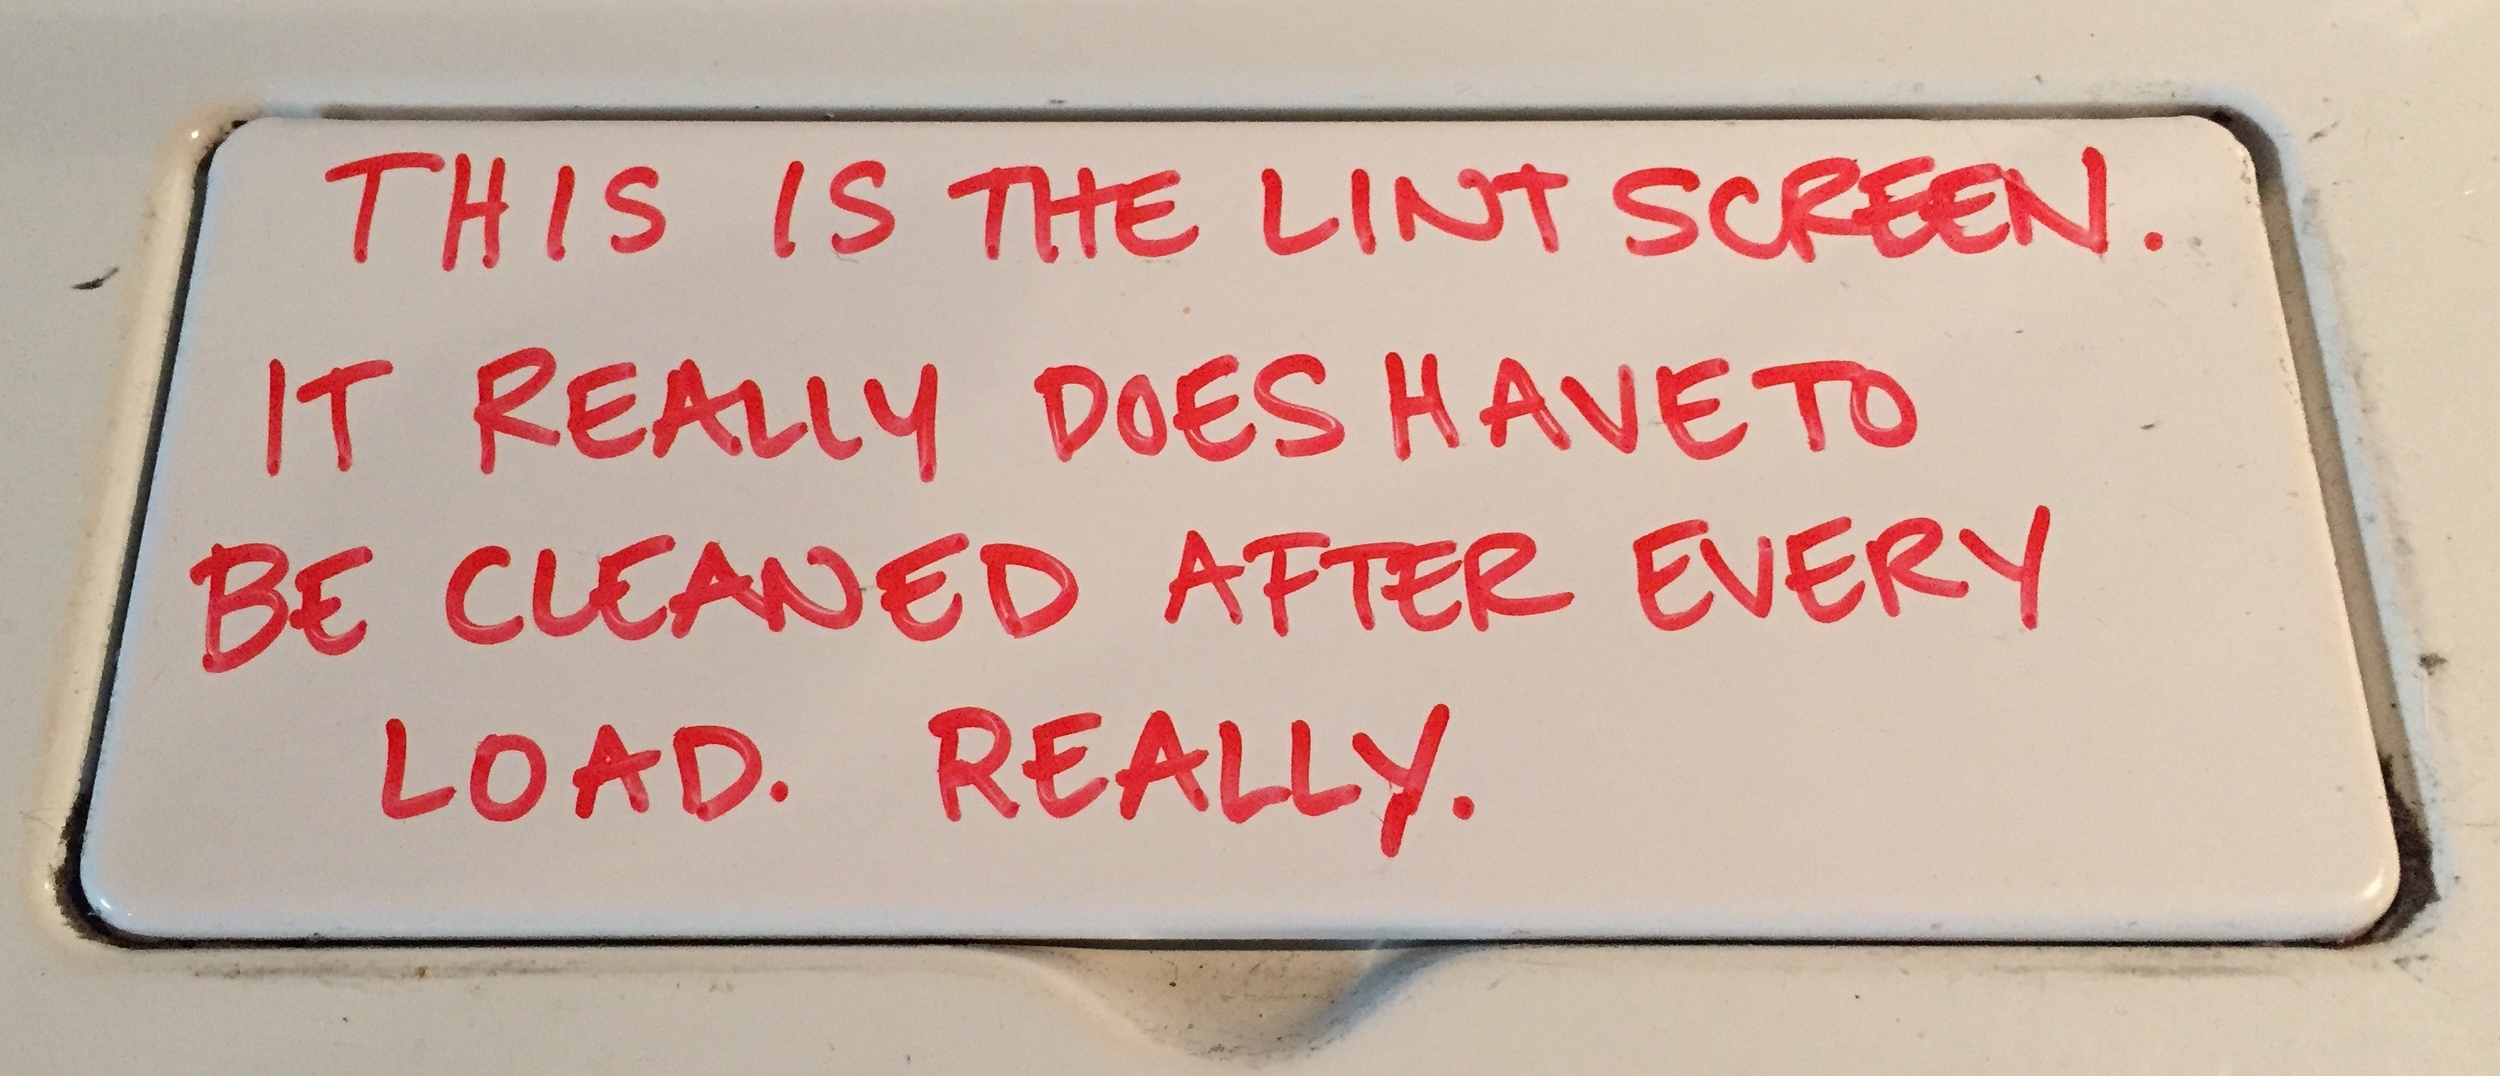 THIS IS THE LINT SCREEN.
IT REALLY DOES HAVE TO
BE CLEANED AFTER EVERY
LOAD. REALLY.